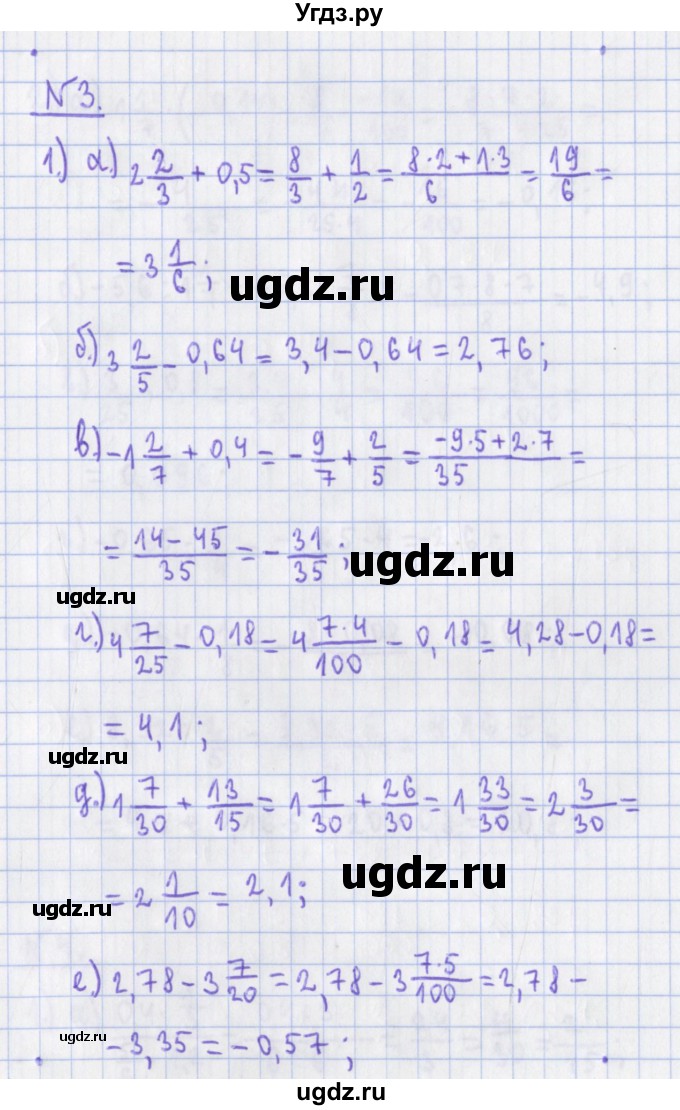 Угдз.ру
№3.
1.) а.) 2 2/3 + 0,5 = 8/3 + 1/2 = (8·2+1·3)/6 = 19/6 =
= 3 1/6 ;
ugdz.ru
б.) 3 2/5 - 0,64 = 3,4 - 0,64 = 2,76 ;
в.) -1 2/7 + 0,4 = - 9/7 + 2/5 = (-9·5+2·7)/35 =
= (14-45)/35 = - 31/35 ;
ugdz.ru
ugdz.ru
г.) 4 7/25 - 0,18 = 4 (7·4)/100 - 0,18 = 4,28 - 0,18 =
= 4,1 ;
ugdz.ru
д.) 1 7/30 + 13/15 = 1 7/30 + 26/30 = 1 33/30 = 2 3/30 =
= 2 1/10 = 2,1 ;
ugdz.ru
ugdz.ru
е.) 2,78 - 3 7/20 = 2,78 - 3 (7·5)/100 = 2,78 -
- 3,35 = - 0,57 ;
ugdz.ru
ugdz.ru